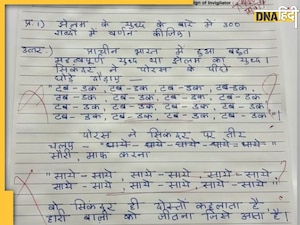 webdunia
प्र:1) झेलम के युद्ध के बारे में 300
शब्दों में वर्णन कीजिए।
उत्तर:) प्राचीन भारत में हुआ बहुत
महत्वपूर्ण युद्ध था झेलम का युद्ध।
सिकंदर ने पोरस के पीछे
घोड़े दौड़ाए -
"टब-डक, टब-डक, टब-डक, टब-डक,
टब-डक, टब-डक, टब-डक, टब-डक,
टब-डक, टब-डक, टब-डक, टब-डक,
टब-डक, टब-डक, टब-डक, टब-डक"!
पोरस ने सिकंदर पर तीर
चलाए -
सॉरी, माफ करना
"साये-साये, साये-साये, साये-साये,
साये-साये, साये-साये, साये-साये"
वो सिकंदर ही दोस्तों कहलाता है,
हारी बाजी को जीतना जिसे आता है!